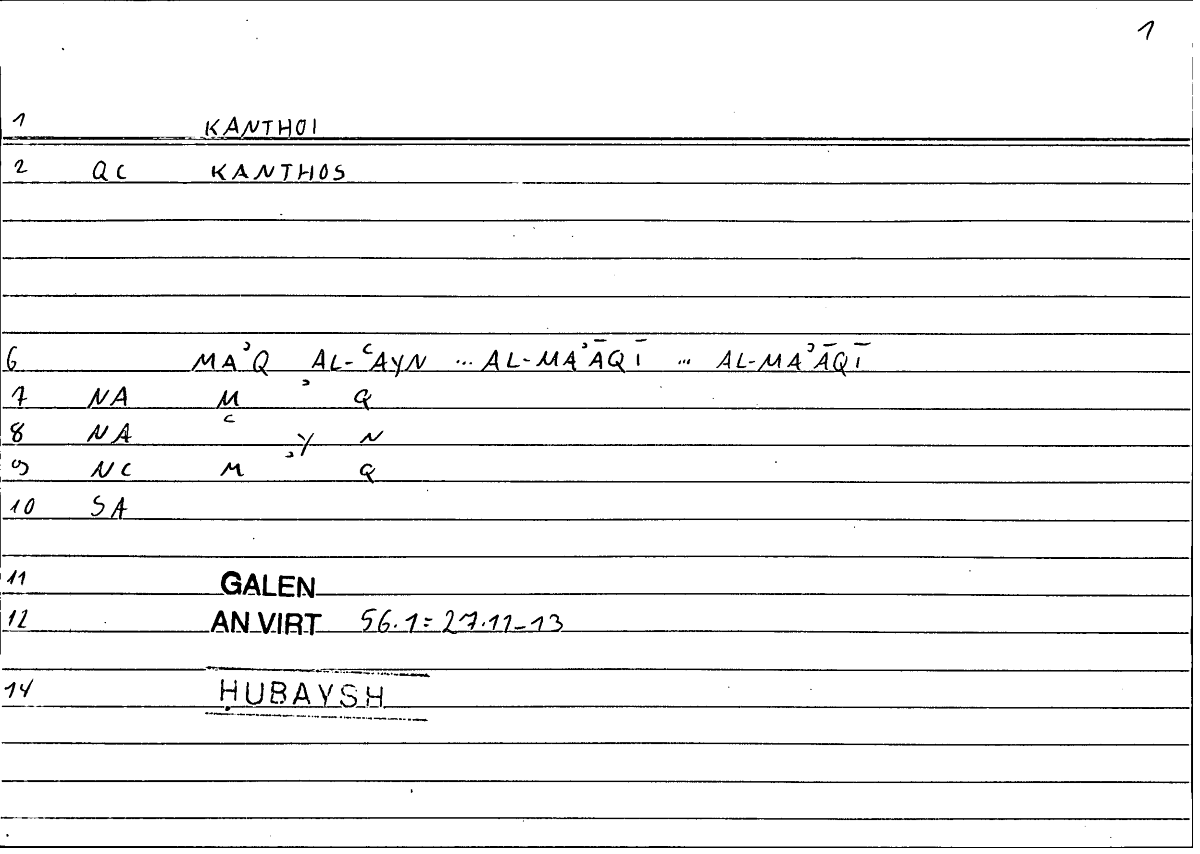 1
1 KANTHOI
2 QC KANTHOS
6 MAʾQ AL-ʿAYN ... AL-MAʾĀQĪ ... AL-MAʾĀQĪ
7 NA M ʾ Q
8 NA ʿ Y N
9 NC M ʾ Q
10 SA
11 GALEN
12 AN VIRT 56.1=27.11-13
14 ḤUBAYSH